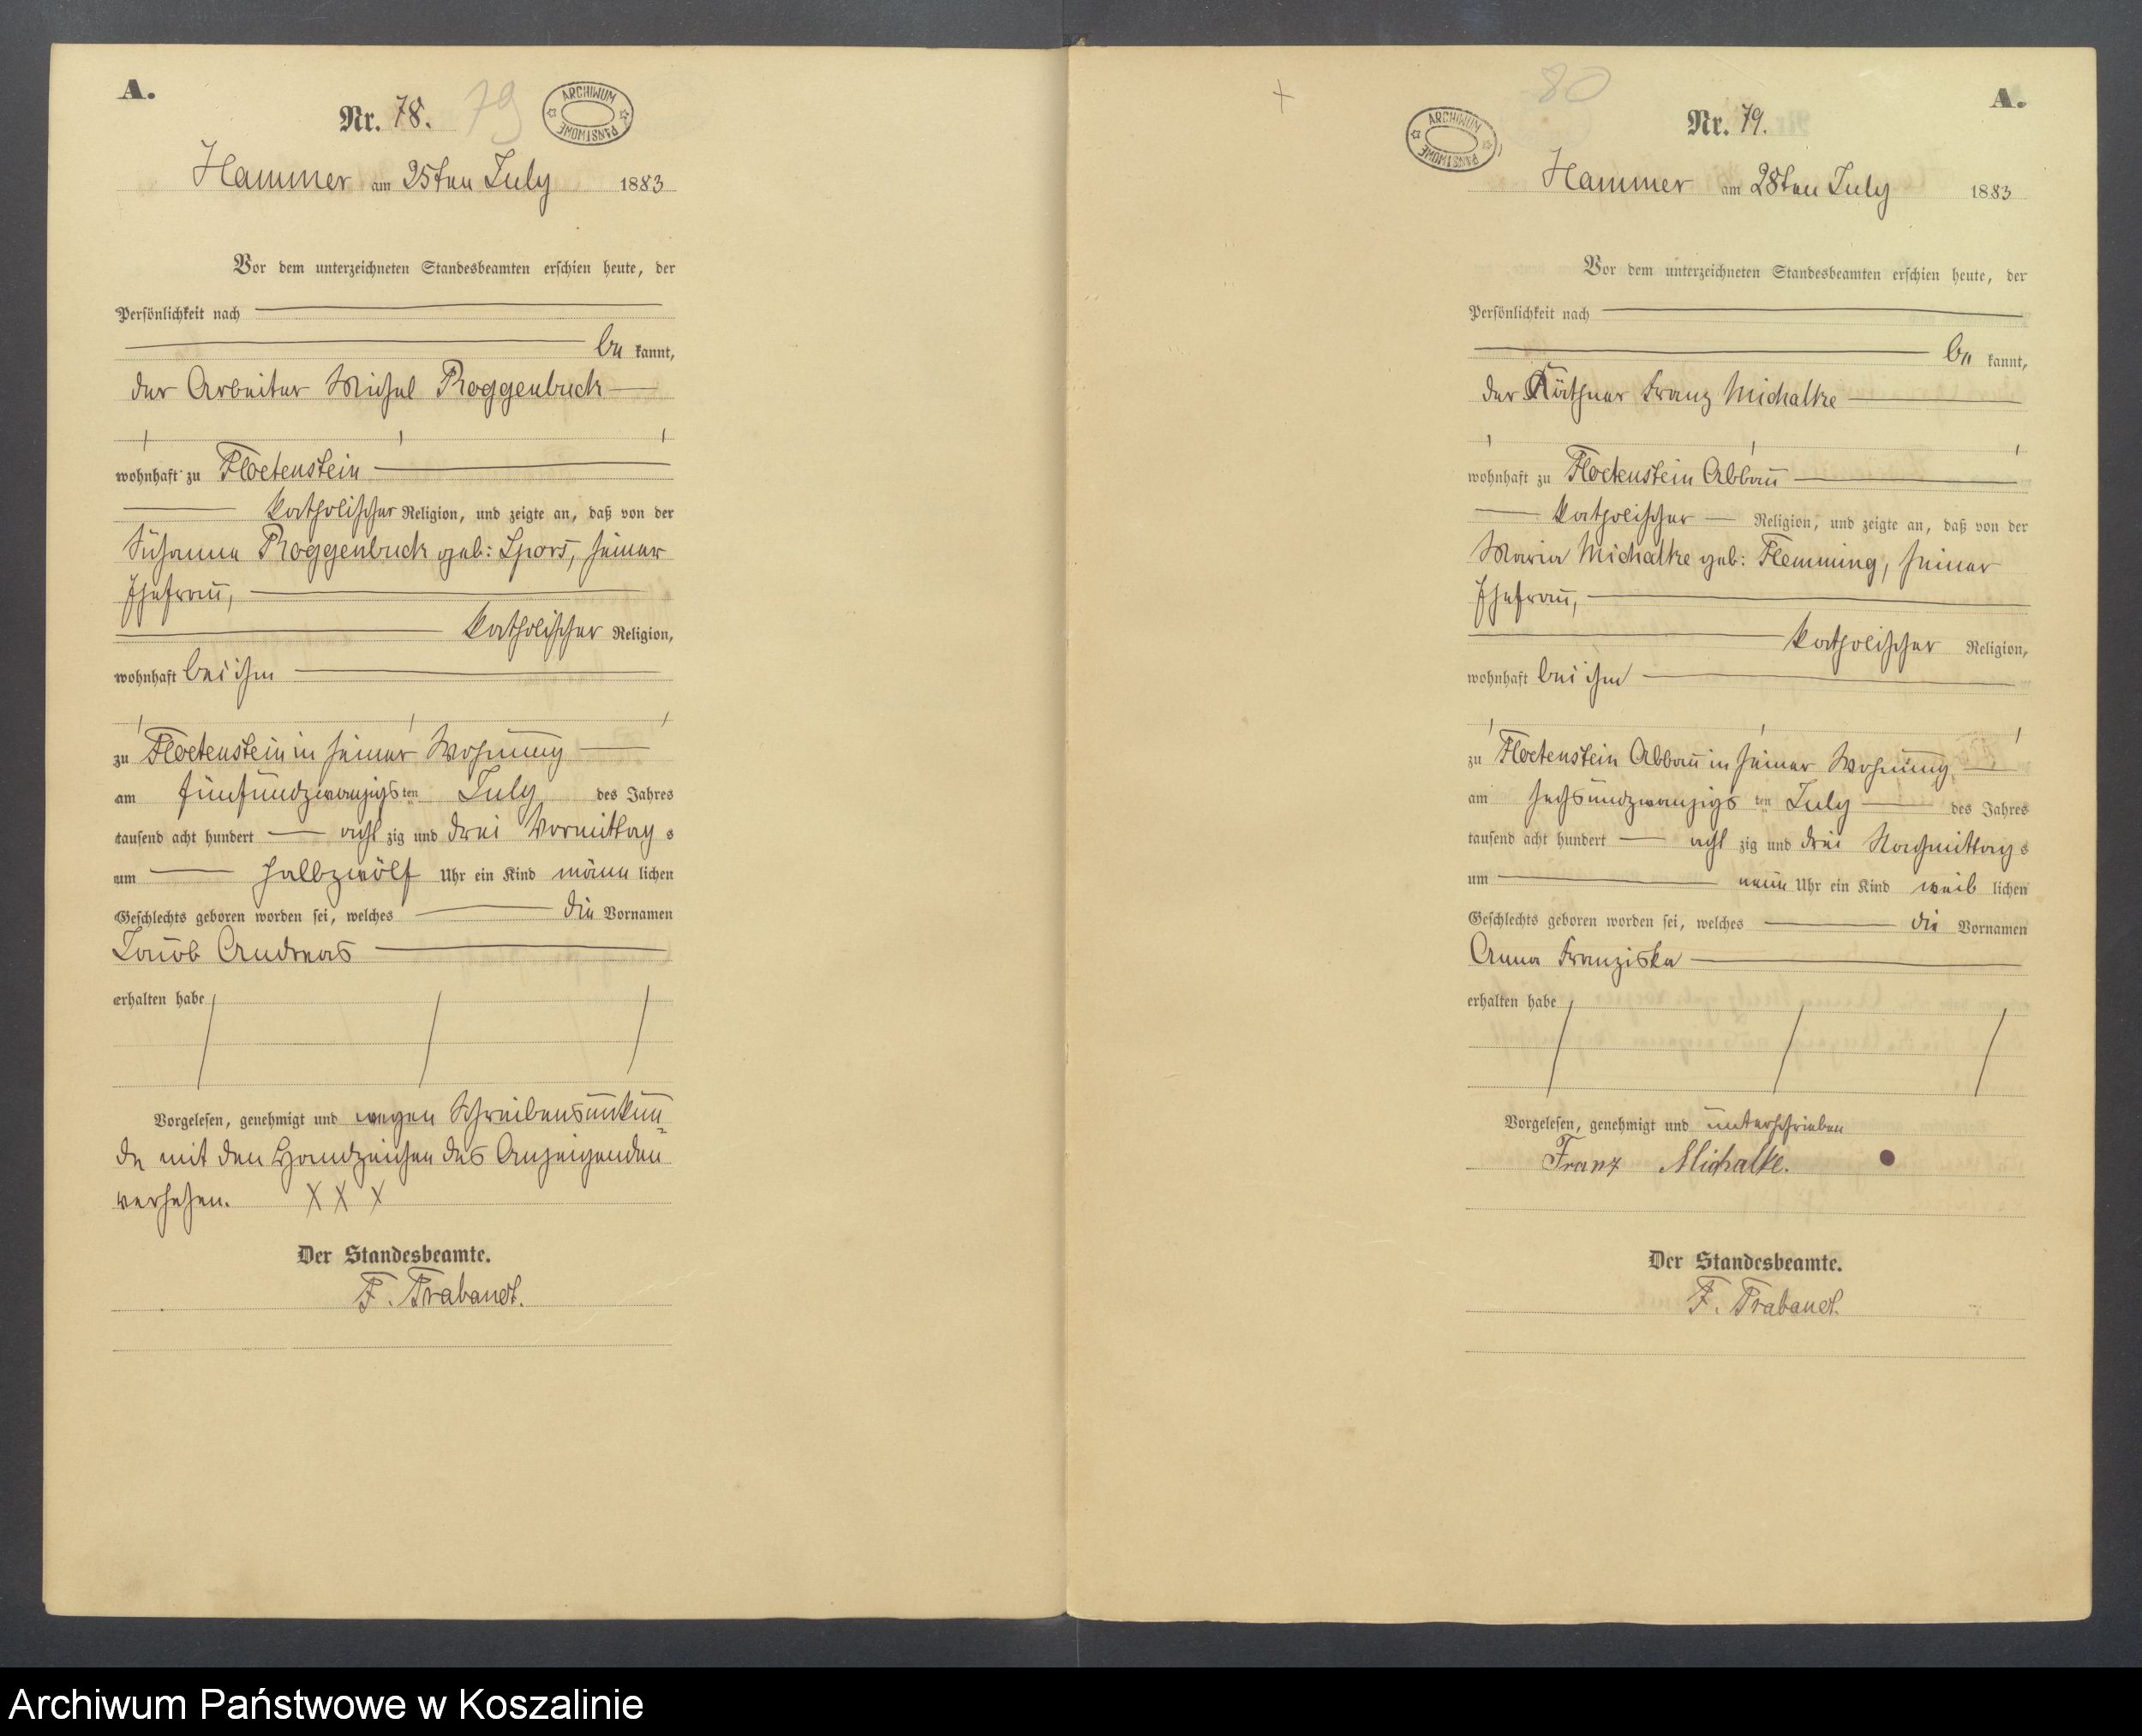 A.
Nr. 78.
79
ARCHIWUM PAŃSTWOWE
Hammer am 25ten July 1883
Vor dem unterzeichneten Standesbeamten erschien heute, der
Persönlichkeit nach
be kannt,
der Arbeiter Michel Roggenbuck
wohnhaft zu Floetenstein
katholischer Religion, und zeigte an, daß von der
Susanna Roggenbuck geb: Spors, seiner
Ehefrau,
katholischer Religion,
wohnhaft bei ihm
zu Floetenstein in seiner Wohnung
am fünfundzwanzigs ten July des Jahres
tausend acht hundert acht zig und drei Vormittag s
um halbzwölf Uhr ein Kind männ lichen
Geschlechts geboren worden sei, welches die Vornamen
Jacob Andreas
erhalten habe
Vorgelesen, genehmigt und wegen Schreibensunkun=
de mit den Handzeichen des Anzeigenden
versehen. X X X
Der Standesbeamte.
F. Trabandt.
80
A.
Nr. 79.
ARCHIWUM PAŃSTWOWE
Hammer am 28ten July 1883
Vor dem unterzeichneten Standesbeamten erschien heute, der
Persönlichkeit nach
be kannt,
der Käthner Franz Michalke
wohnhaft zu Floetenstein Abbau
katholischer Religion, und zeigte an, daß von der
Maria Michalke geb: Flemming, seiner
Ehefrau,
katholischer Religion,
wohnhaft bei ihm
zu Floetenstein Abbau in seiner Wohnung
am sechsundzwanzigs ten July des Jahres
tausend acht hundert acht zig und drei Nachmittag s
um neun Uhr ein Kind weib lichen
Geschlechts geboren worden sei, welches die Vornamen
Anna Franziska
erhalten habe
Vorgelesen, genehmigt und unterschrieben
Franz Michalke.
Der Standesbeamte.
F. Trabandt.
Archiwum Państwowe w Koszalinie